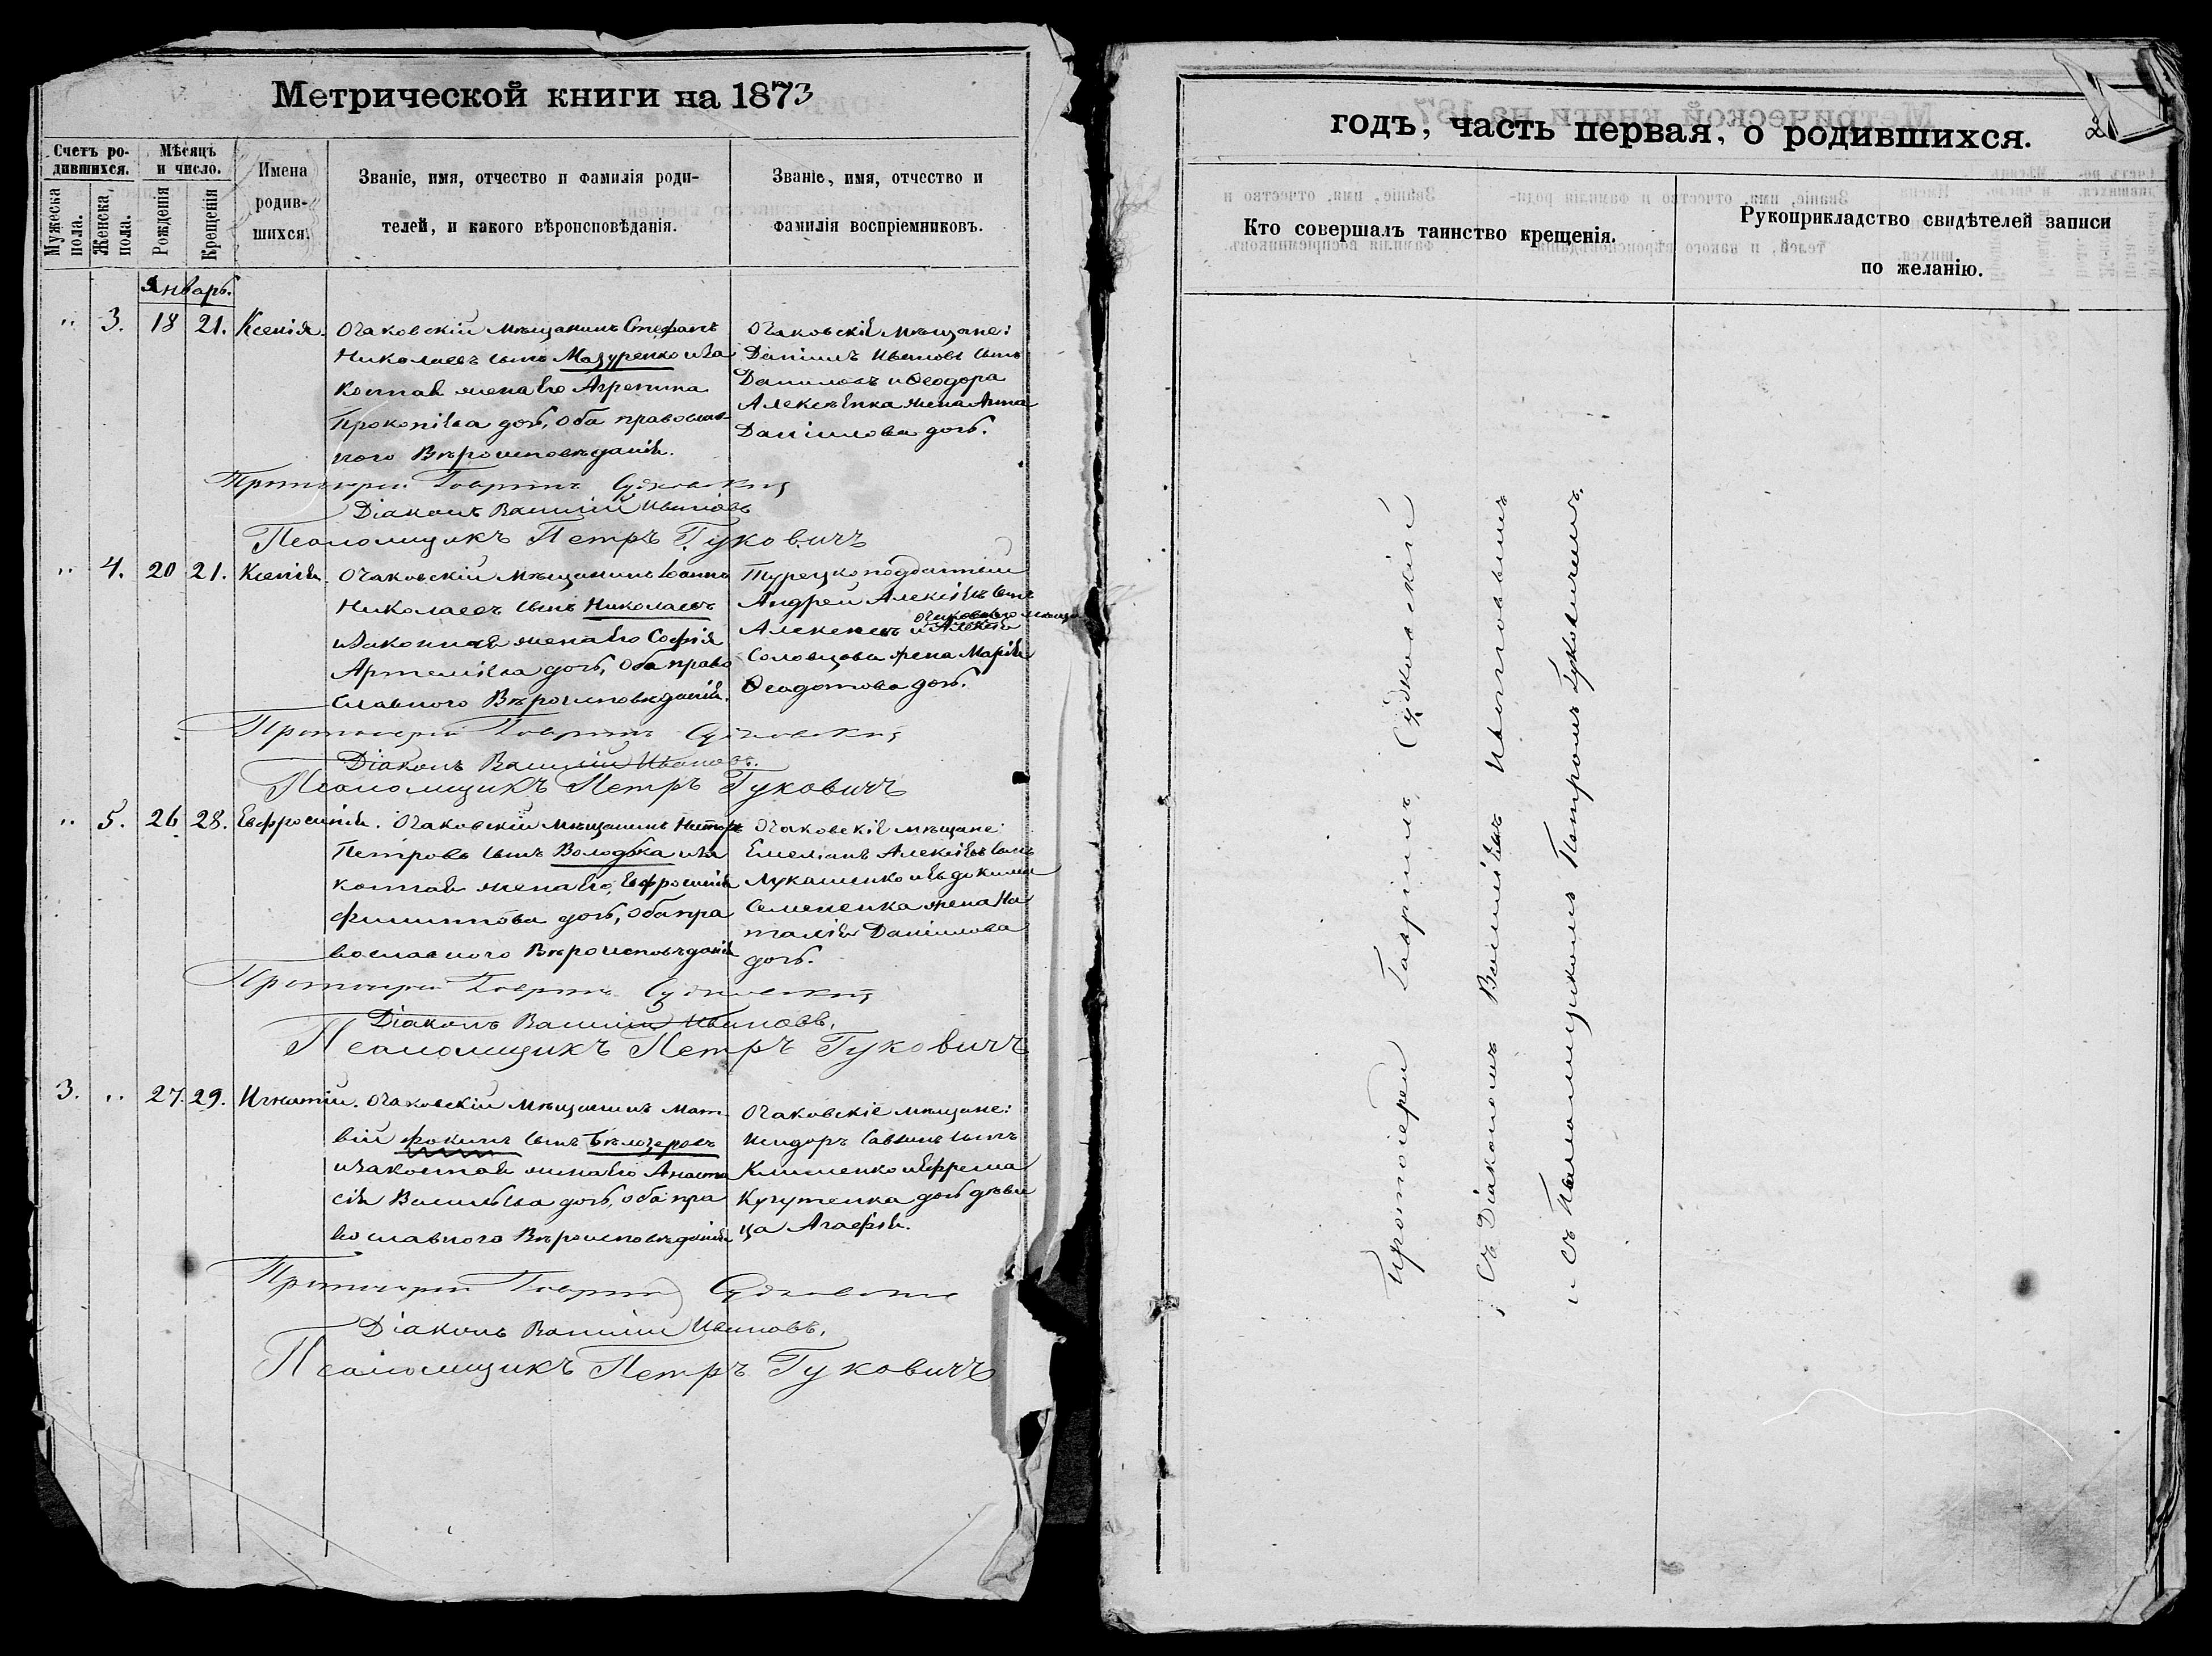 Метрической книги на 1873
Счетъ ро-
дившихся.
Мужеска
пола.
Женска,
пола.
Мѣсяцъ
и число.
Рожденія
Крещенія
Имена
родив-
шихся.
Званіе, имя, отчество и фамилія роди-
телей, и какого вѣроисповѣданія.
Званіе, имя, отчество и
фамилія воспріемниковъ.
Январь.
" 3. 18 21. Ксенія.
Очаковскій мѣщанинъ Стефанъ
Николаевъ сынъ Мазуренко и за
конная жена его Агрепина
Прокопіева дочь, оба православ-
ного Вѣроисповѣданія.
Очаковскіе мѣщане:
Даніилъ Ивановъ сынъ
Даниловъ и Ѳеодора
Алексѣенка жена Анна
Даніилова дочь.
Протоіерей Гавріилъ Судковскій
Діаконъ Василій Ивановъ
Псаломщикъ Петръ Гуковичъ
" 4. 20 21. Ксенія.
Очаковскій мѣщанинъ Іоаннъ
Николаевъ сынъ Николаевъ
и законная жена его Софія
Артеміева дочь, оба право
славного Вѣроисповѣданія.
Турецкоподданный
Андрей Алексіевъ сынъ
очаковского мѣщан
Алексѣевъ и Алексія
Соловцова жена Марія
Ѳеодотова дочь.
Протоіерей Гавріилъ Судковскій
Діаконъ Василій Ивановъ.
Псаломщикъ Петръ Гуковичъ
" 5. 26 28. Евфросинія.
Очаковскій мѣщанинъ Несторъ
Петровъ сынъ Володька и за
конная жена его, Евфросинія
Филиппова дочь, оба пра
вославного Вѣроисповѣданія
Очаковскіе мѣщане:
Емеліанъ Алексіевъ сынъ
Лукашенко и Евдокима
Семененка жена На
талія Даніилова
дочь.
Протоіерей Гавріилъ Судковскій
Діаконъ Василій Ивановъ.
Псаломщикъ Петръ Гуковичъ
3. " 27. 29. Игнатій.
Очаковскій мѣщанинъ Мат
вій Фокинъ сынъ Бѣлозеровъ
и законная жена его Анаста
сія Васильева дочь, оба пра
вославного Вѣроисповѣданія
Очаковскіе мѣщане:
Исидоръ Саввинъ сынъ
Клименко и Ефрема
Кугутенка дочь дѣви
ца Агафія.
Протоіерей Гавріилъ Судковскій
Діаконъ Василій Ивановъ.
Псаломщикъ Петръ Гуковичъ
годъ, часть первая, о родившихся.
2
Кто совершалъ таинство крещенія.
Рукоприкладство свидѣтелей записи
по желанію.
Протоіерей Гавріилъ Судковскій
съ Діакономъ Василіемъ Ивановымъ
и съ Псаломщикомъ Петромъ Гуковичемъ.